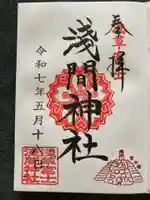 奉拝
淺間神社
令和七年五月十八日